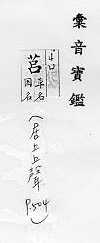 彙音寶鑑
莒
名
国名
(居上上聲
P.504)